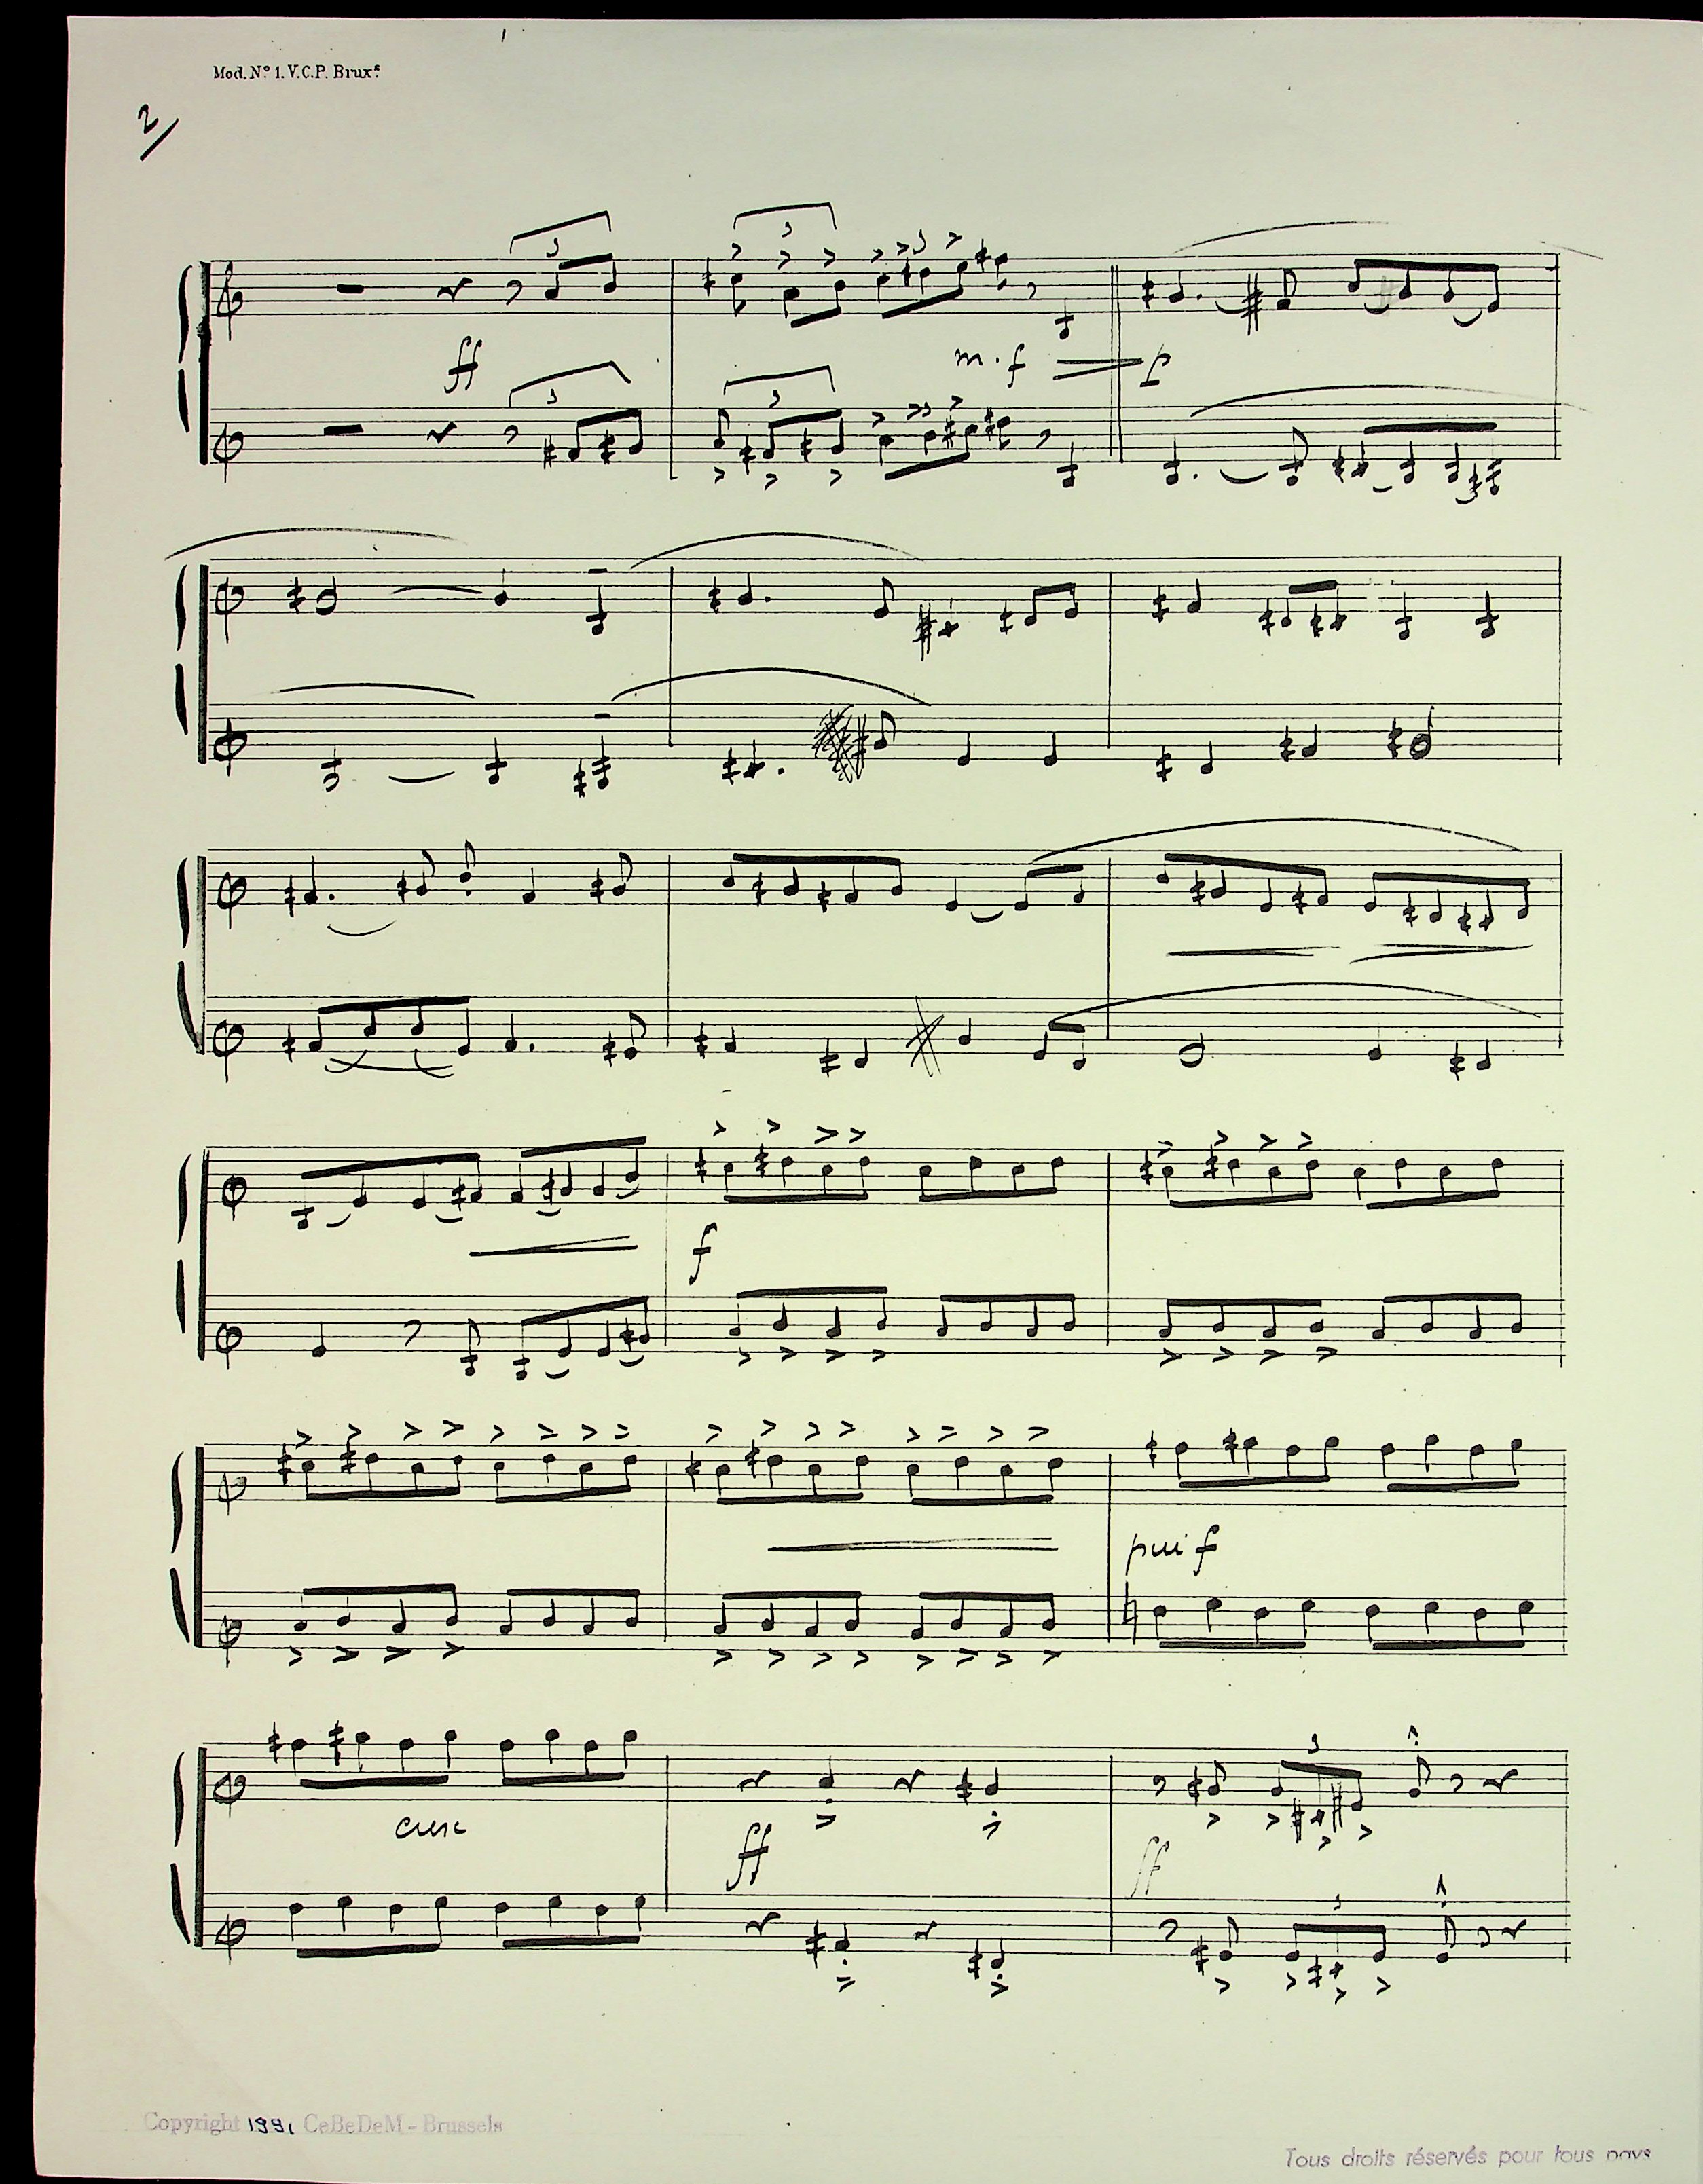 Mod. Nº 1. V.C.P. Brux.ˢ
2/
3
3
3
ff
m.f
p
3
3
3
f
più f
cresc
3
ff
ff
3
Copyright 1991 CeBeDeM - Brussels
Tous droits réservés pour tous pays